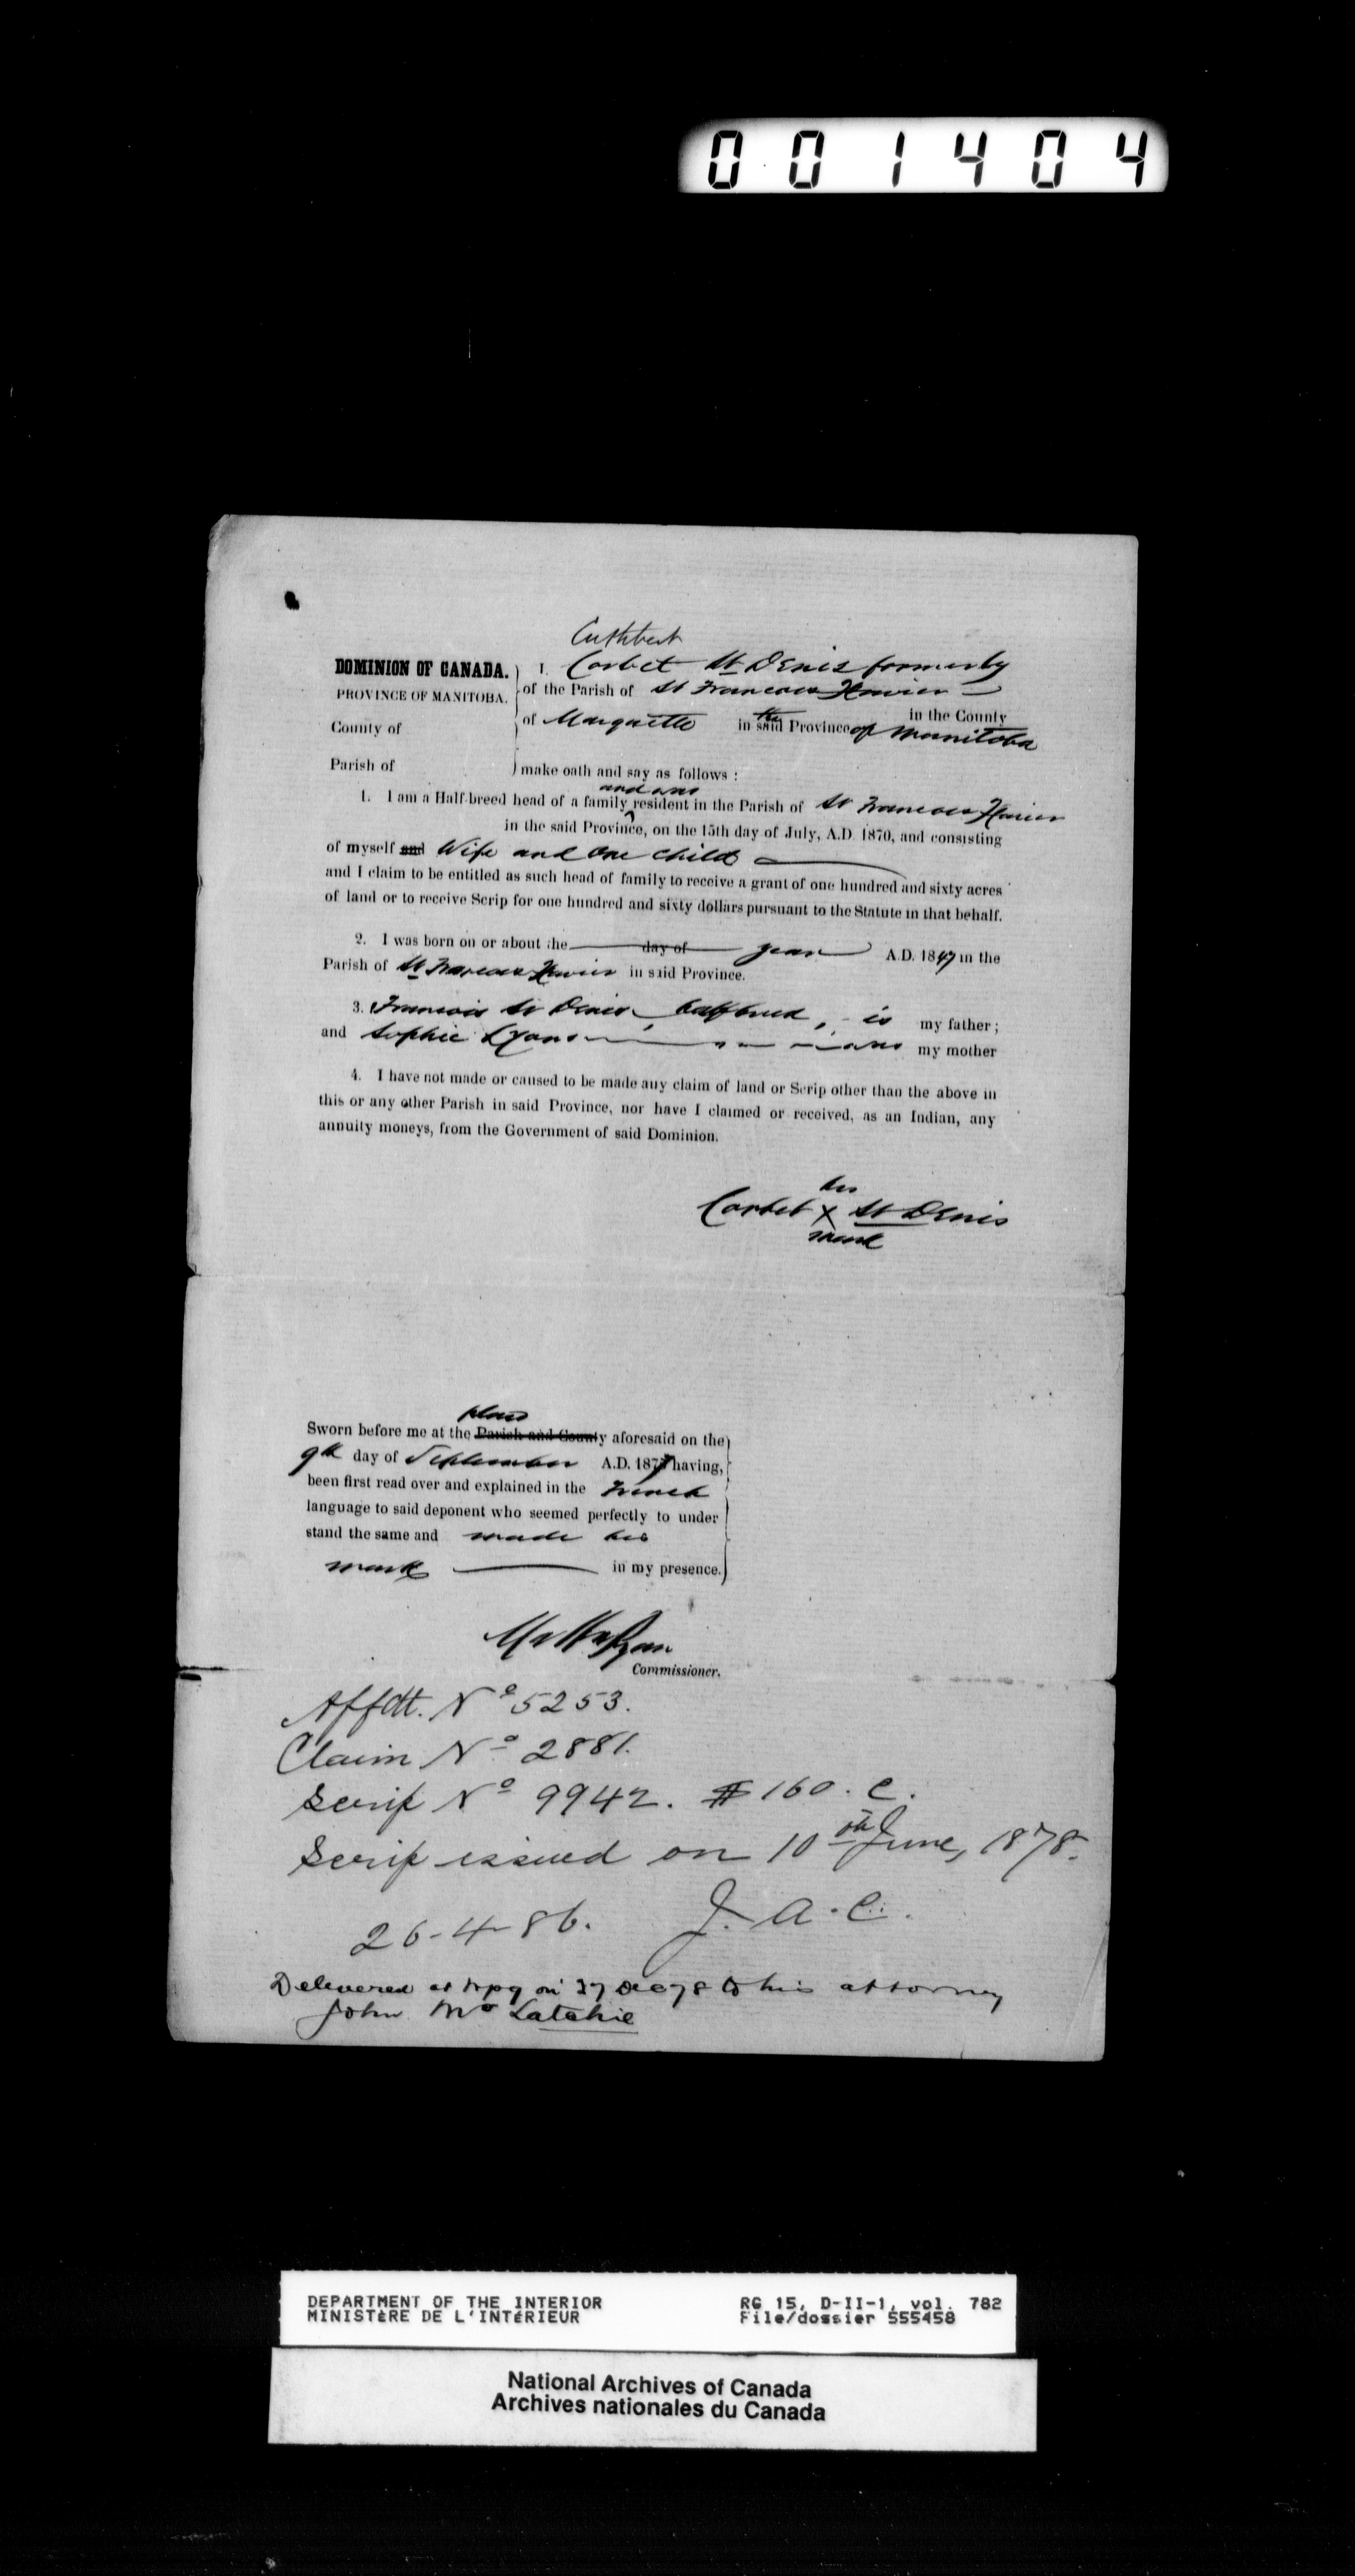 001404
Cuthbert
DOMINION OF CANADA. I. Corbet St Denis formerly
PROVINCE OF MANITOBA. of the Parish of St Francois Xavier
County of of Marquette in the said Province of Manitoba in the County
Parish of make oath and say as follows :
and was
1. I am a Half-breed head of a family resident in the Parish of St Francois Xavier
in the said Province, on the 15th day of July, A.D. 1870, and consisting
of myself and Wife and One child
and I claim to be entitled as such head of family to receive a grant of one hundred and sixty acres
of land or to receive Scrip for one hundred and sixty dollars pursuant to the Statute in that behalf.
2. I was born on or about the day of year A.D. 1847 in the
Parish of St Francois Xavier in said Province.
3. Francois St Denis halfbreed, is my father;
and Sophie Lyons was my mother
4. I have not made or caused to be made any claim of land or Scrip other than the above in
this or any other Parish in said Province, nor have I claimed or received, as an Indian, any
annuity moneys, from the Government of said Dominion.
his
Corbet X St Denis
mark
place
Sworn before me at the Parish and County aforesaid on the
9th day of September A.D. 1877 having,
been first read over and explained in the French
language to said deponent who seemed perfectly to under
stand the same and made his
mark in my presence.
Commissioner.
Affdt. No 5253.
Claim No 2881.
Scrip No 9942. $160. C.
Scrip issued on 10th June, 1878.
26-4-86. J. A. C.
Delivered at Wpg on 27 Dec 78 to his attorney
John Mc Latchie
DEPARTMENT OF THE INTERIOR RG 15, D-II-1, vol. 782
MINISTÈRE DE L'INTÉRIEUR File/dossier 555458
National Archives of Canada
Archives nationales du Canada